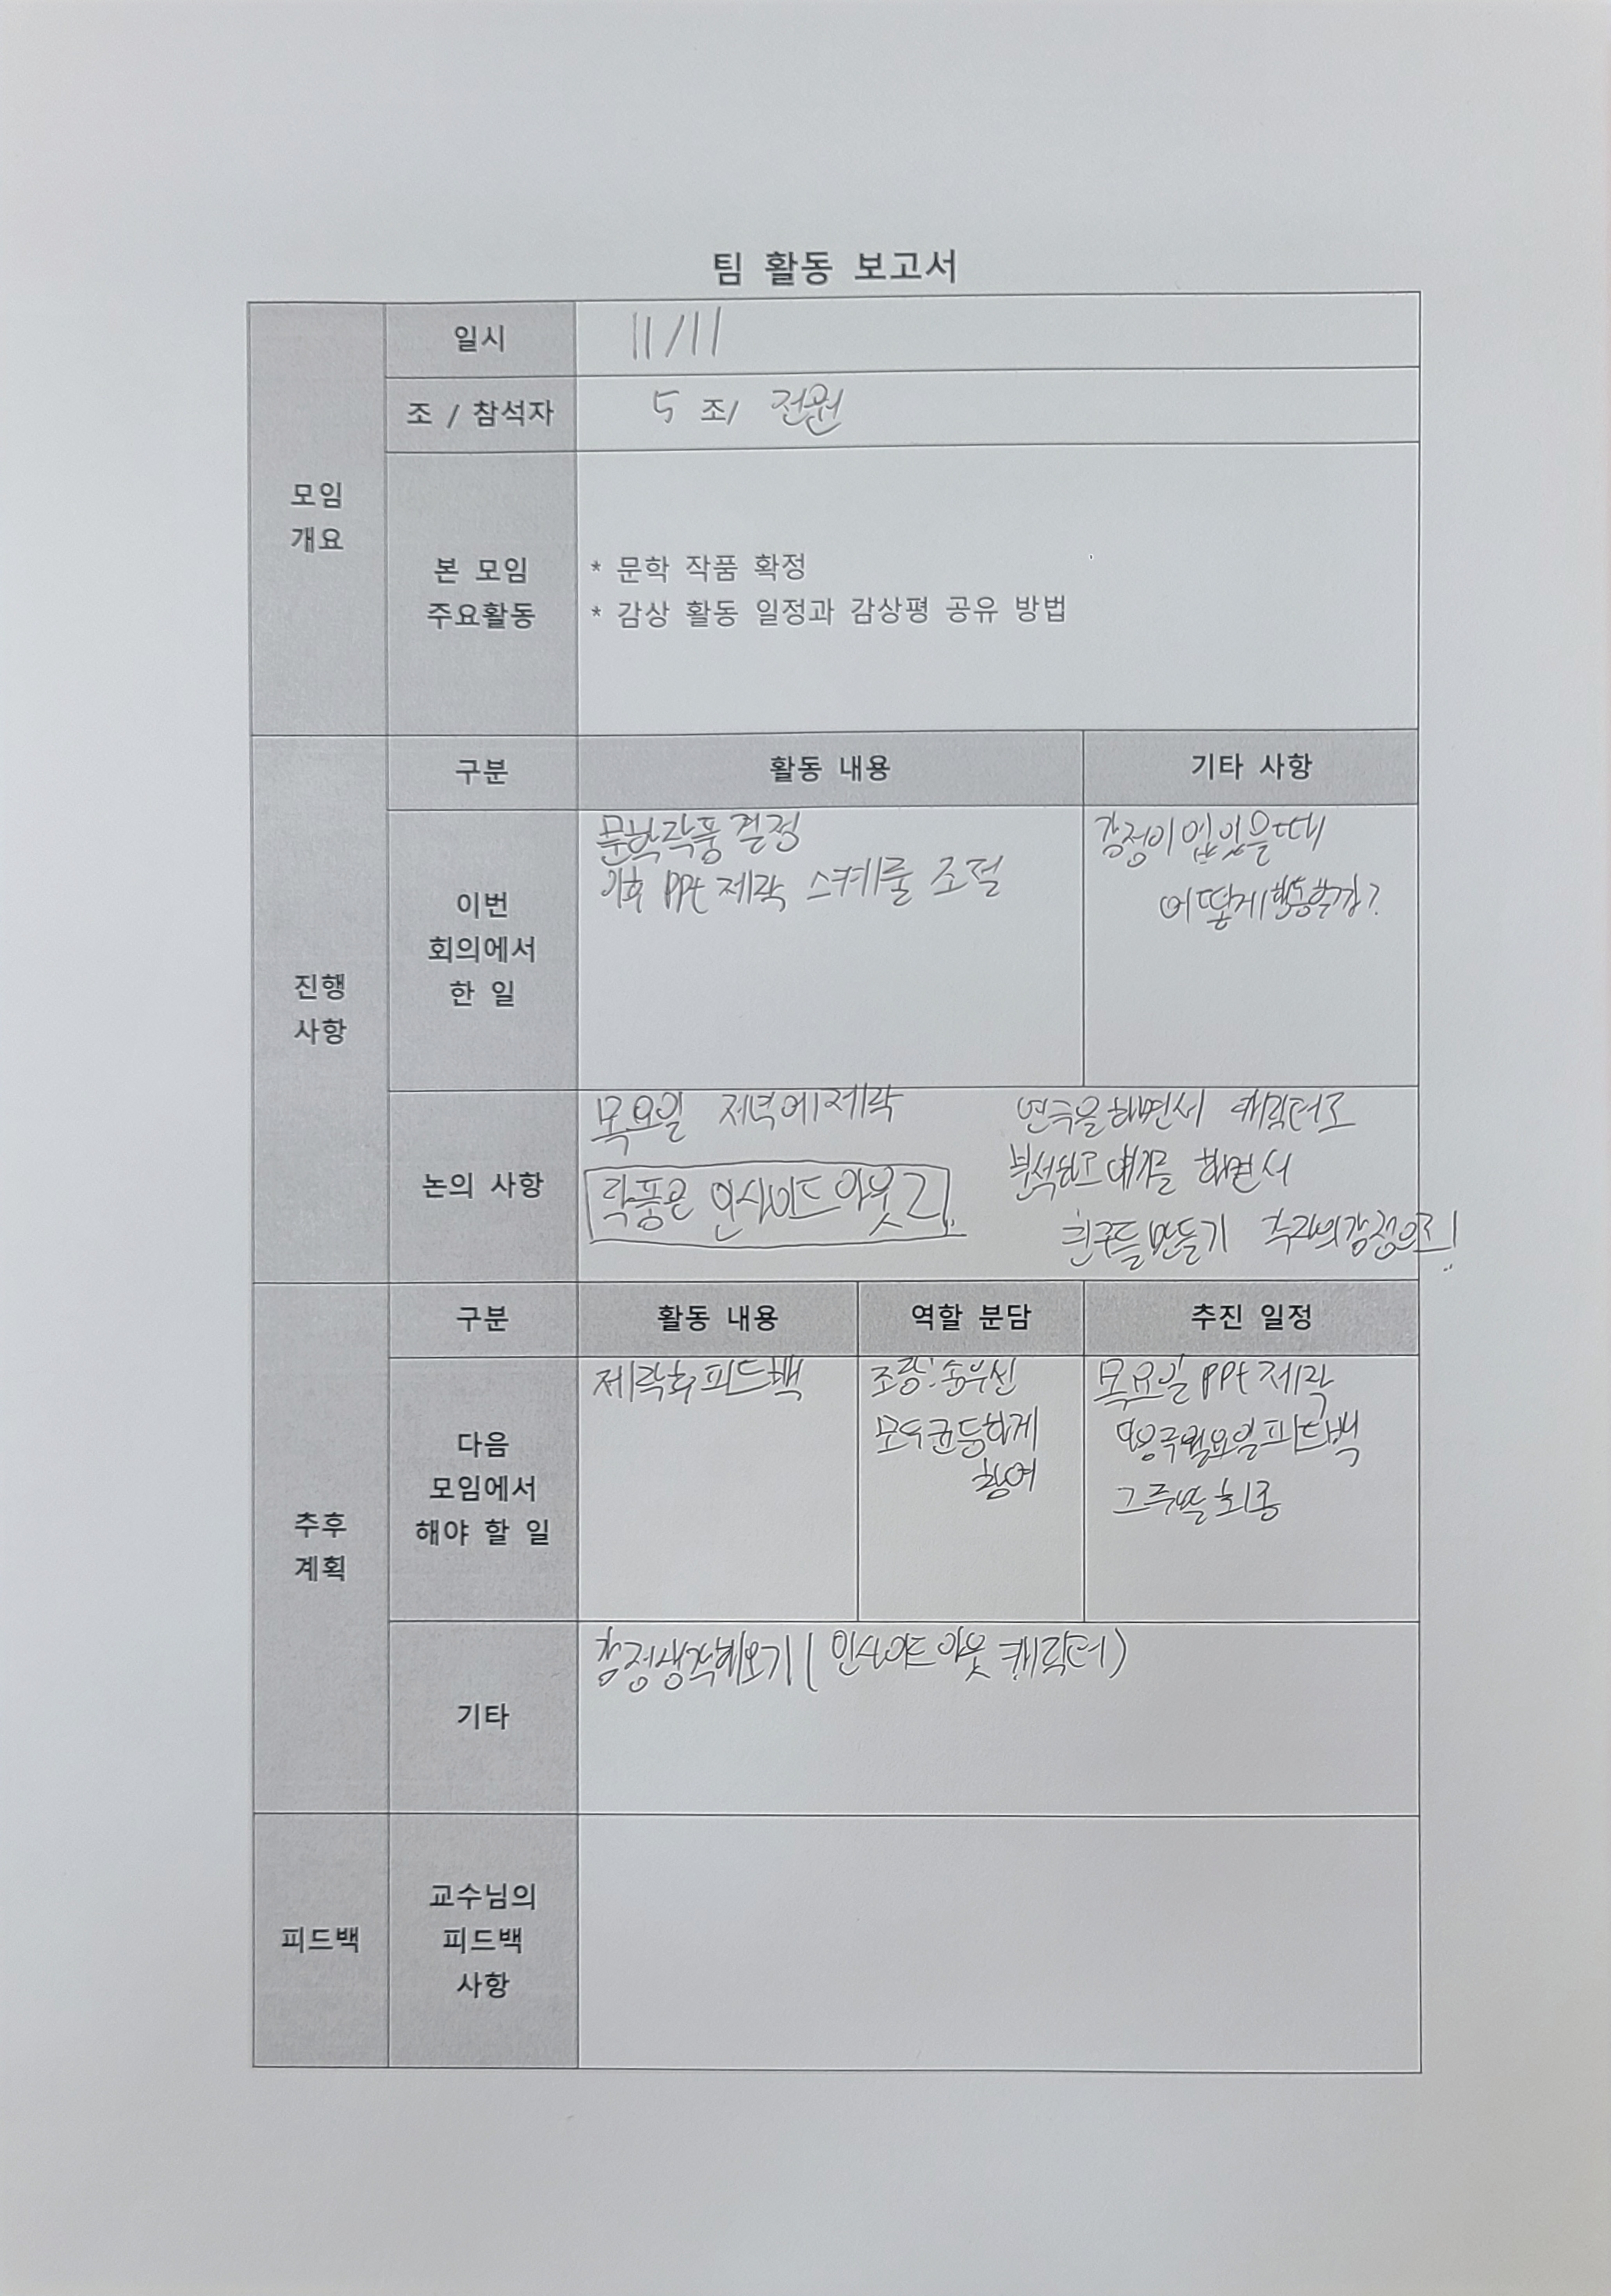 팀 활동 보고서
모임
개요
일시
11/11
조 / 참석자
5 조/ 전원
본 모임
주요활동
* 문학 작품 확정
* 감상 활동 일정과 감상평 공유 방법
진행
사항
구분
활동 내용
기타 사항
이번
회의에서
한 일
문학작품 결정
이후 PPt 제작 스케줄 조절
감정이 없었을때
어떻게 행동할까?
논의 사항
목요일 저녁에 제작
작품은 인사이드 아웃2
연극을 하면서 캐릭터로
분석하고 얘기를 하면서
친구들 만들기 각자의 감정으로!
추후
계획
구분
활동 내용
역할 분담
추진 일정
다음
모임에서
해야 할 일
제작후 피드백
조장:
모두 균등하게
참여
목요일 PPt 제작
월요일 피드백
기타
감정생각해오기 ( 인사이드 아웃 캐릭터 )
피드백
교수님의
피드백
사항